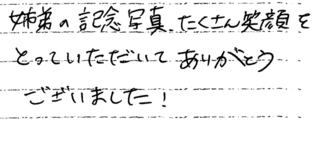 姉弟の記念写真、たくさん笑顔を
とっていただいてありがとう
ございました!